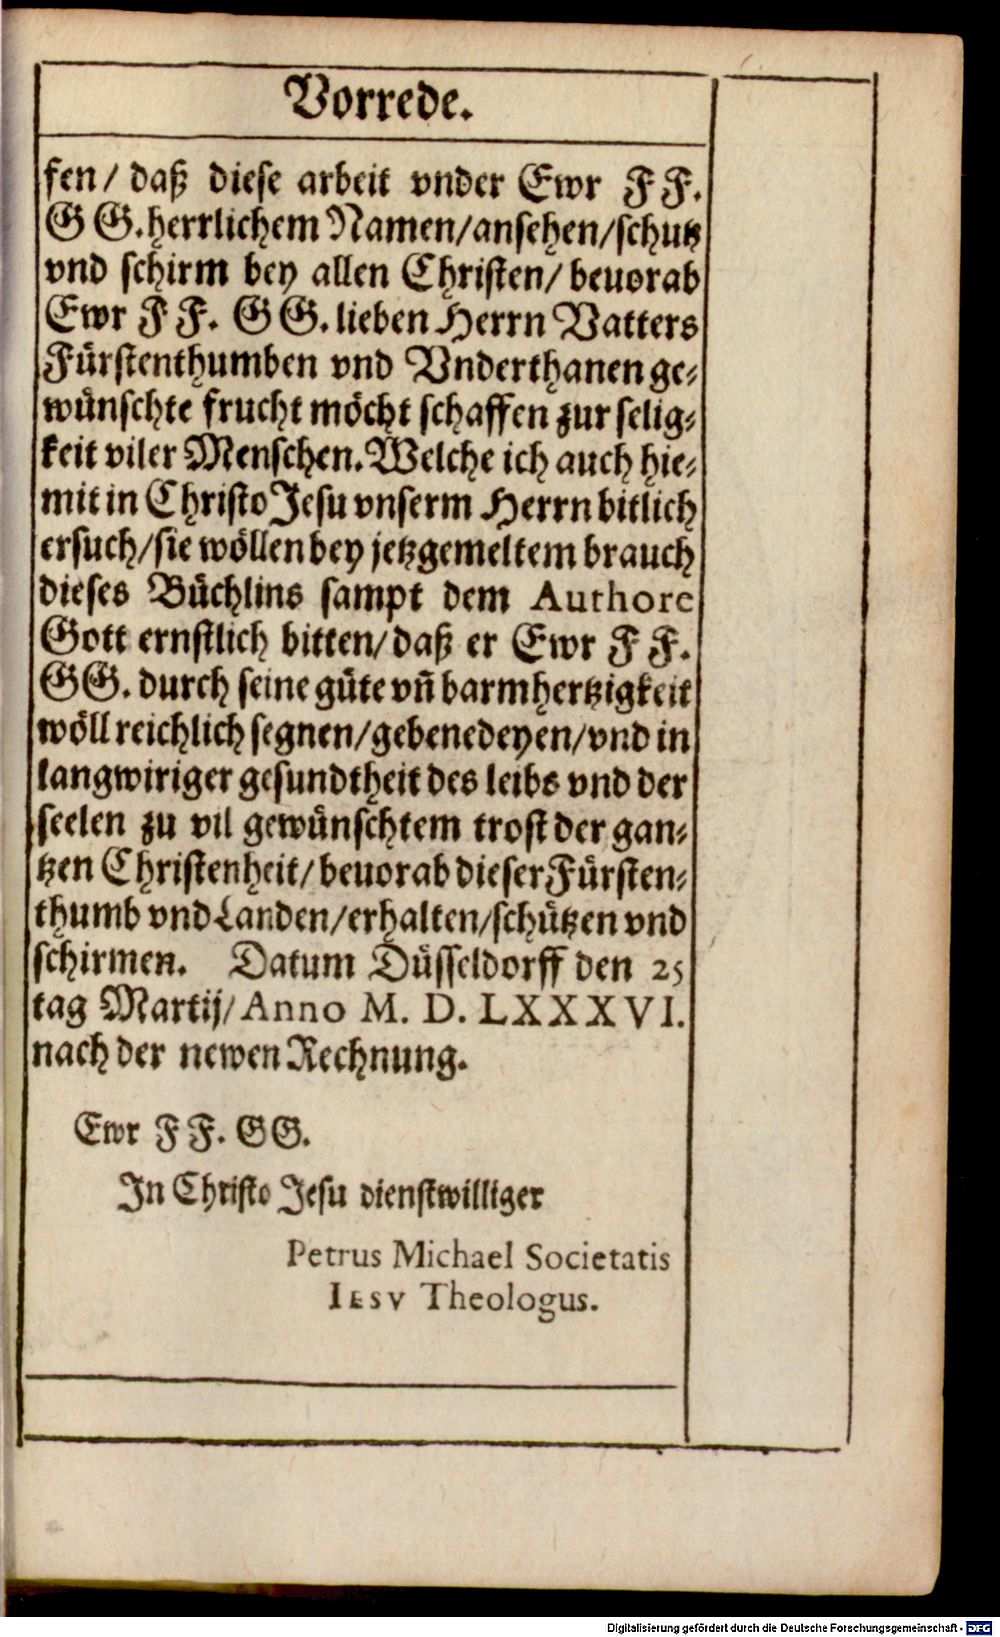 Vorrede.
fen/ daß diese arbeit vnder Ewr F F.
G G. herrlichem Namen/ansehen/schutz
vnd schirm bey allen Christen/ beuorab
Ewr F F. G G. lieben Herrn Vatters
Fürstenthumben vnd Vnderthanen ge-
wünschte frucht möcht schaffen zur selig-
keit viler Menschen. Welche ich auch hie-
mit in Christo Jesu vnserm Herrn bitlich
ersuch/sie wöllen bey jetzgemeltem brauch
dieses Büchlins sampt dem Authore
Gott ernstlich bitten/daß er Ewr F F.
G G. durch seine güte vñ barmhertzigkeit
wöll reichlich segnen/gebenedeyen/vnd in
langwiriger gesundtheit des leibs vnd der
seelen zu vil gewünschtem trost der gan-
tzen Christenheit/ beuorab dieser Fürsten-
thumb vnd Landen/erhalten/schützen vnd
schirmen. Datum Düsseldorff den 25
tag Martij/ Anno M. D. LXXXVI.
nach der newen Rechnung.
Ewr F F. G G.
In Christo Jesu dienstwilliger
Petrus Michael Societatis
IESV Theologus.
Digitalisierung gefördert durch die Deutsche Forschungsgemeinschaft - DFG